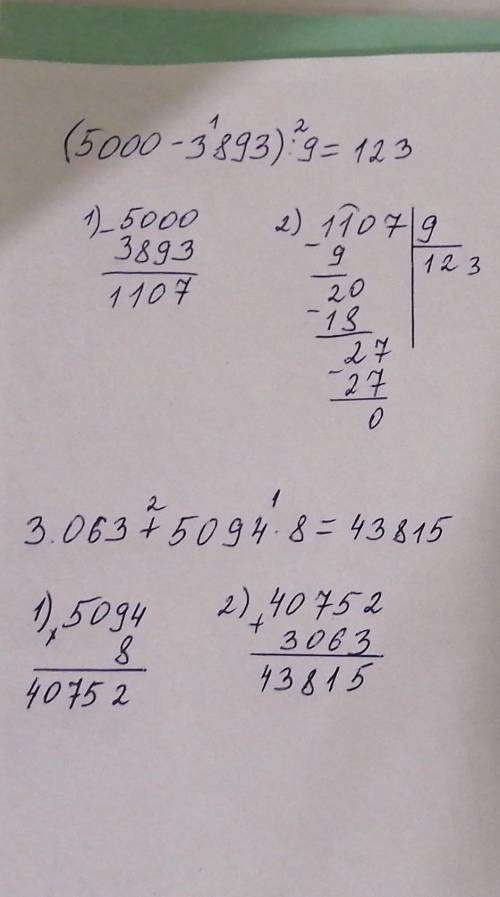 (5000-3893):9=123
1 2
1) -5000
3893
1107
2) -1107 9
9 123
20
-18
27
-27
0
3.063+5094·8=43815
2 1
1) x5094
8
40752
2) +40752
3063
43815